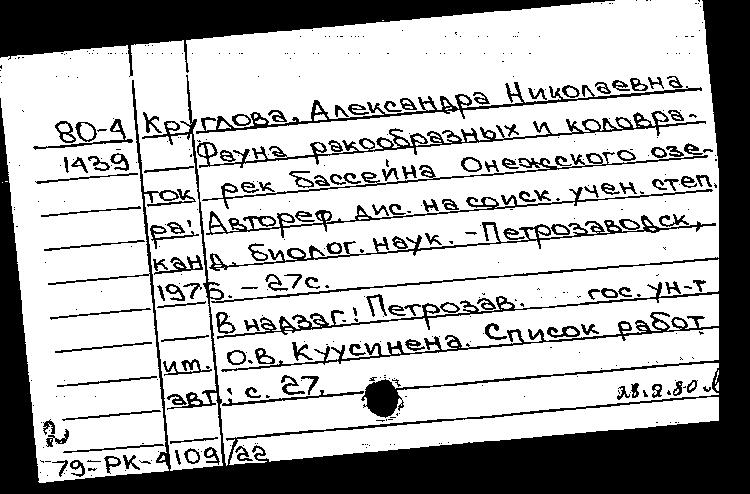 80-4 Круглова, Александра Николаевна.
1439 Фауна ракообразных и коловра-
ток рек бассейна Онежского озе-
ра: Автореф. дис. на соиск. учен. степ.
канд. биолог. наук. - Петрозаводск,
1975. - 27с.
В надзаг.: Петрозав. гос. ун-т
им. О.В. Куусинена. Список работ
авт.: с. 27.
28.2.80
2
79-РК-4109/22